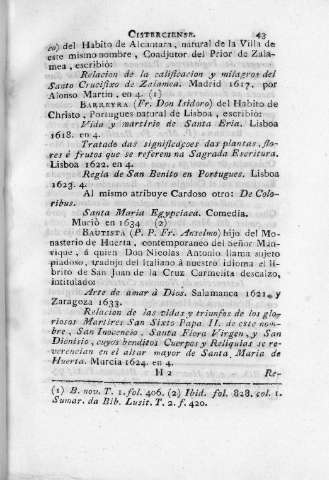 CISTERCIENSE. 43
co) del Habito de Alcantara, natural de la Villa de
este mismo nombre, Coadjutor del Prior de Zala-
mea, escribió:
Relacion de la calificacion y milagros del
Santo Crucifixo de Zalamea. Madrid 1617. por
Alonso Martin, en 4. (1)
BARREYRA (Fr. Don Isidoro) del Habito de
Christo, Portugues natural de Lisboa, escribio:
Vida y martirio de Santa Eria. Lisboa
1618. en 4.
Tratado das significaçoes das plantas, flo-
res é frutos que se referem na Sagrada Escritura.
Lisboa 1622. en 4.
Regla de San Benito en Portugues. Lisboa
1623. 4.
Al mismo atribuye Cardoso otro: De Colo-
ribus.
Santa Maria Egypciaca. Comedia.
Murió en 1634 (2)
BAUTISTA (P. P. Fr. Anselmo) hijo del Mo-
nasterio de Huerta, contemporaneo del Señor Man-
rique, á quien Don Nicolas Antonio llama sujeto
piadoso, tradujo del Italiano á nuestro idioma el li-
brito de San Juan de la Cruz Carmelita descalzo,
intitulado:
Arte de amar á Dios. Salamanca 1621. y
Zaragoza 1633.
Relacion de las vidas y triunfos de los glo-
riosos Martires San Sixto Papa II. de este nom-
bre, San Inocencio, Santa Flora Virgen, y San
Dionisio, cuyos benditos Cuerpos y Reliquias se re-
verencian en el altar mayor de Santa Maria de
Huerta. Murcia 1624. en 4.
H 2 Re-
(1) B. nov. T. 1. fol. 406. (2) Ibid. fol. 828. col. 1.
Sumar. da Bib. Lusit. T. 2. f. 420.